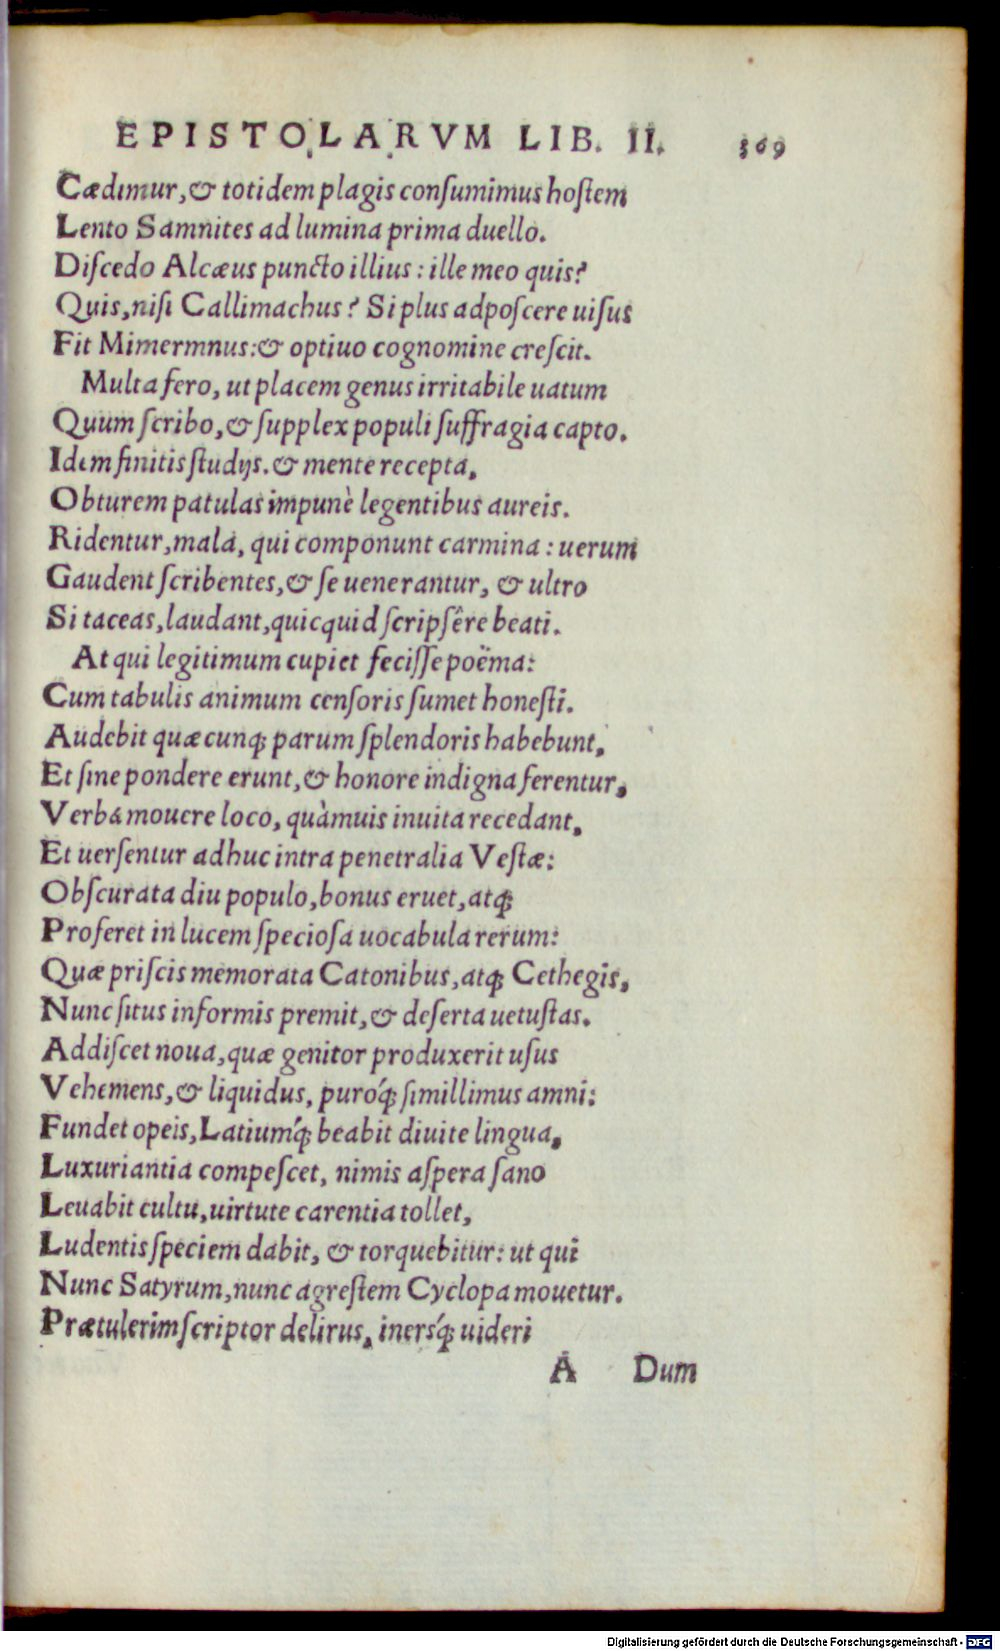 EPISTOLARVM LIB. II. 369
Cædimur, & totidem plagis conſumimus hoſtem
Lento Samnites ad lumina prima duello.
Diſcedo Alcæus puncto illius: ille meo quis?
Quis, niſi Callimachus? Si plus adpoſcere uiſus
Fit Mimermnus: & optiuo cognomine creſcit.
Multa fero, ut placem genus irritabile uatum
Quum ſcribo, & ſupplex populi ſuffragia capto.
Idem finitis ſtudijs. & mente recepta,
Obturem patulas impunè legentibus aureis.
Ridentur, mala, qui componunt carmina: uerum
Gaudent ſcribentes, & ſe uenerantur, & ultro
Si taceas, laudant, quicquid ſcripſêre beati.
At qui legitimum cupiet feciſſe poëma:
Cum tabulis animum cenſoris ſumet honeſti.
Audebit quæcunq; parum ſplendoris habebunt,
Et ſine pondere erunt, & honore indigna ferentur,
Verba mouere loco, quàmuis inuita recedant,
Et uerſentur adhuc intra penetralia Veſtæ:
Obſcurata diu populo, bonus eruet, atq;
Proferet in lucem ſpecioſa uocabula rerum:
Quæ priſcis memorata Catonibus, atq; Cethegis,
Nunc ſitus informis premit, & deſerta uetuſtas.
Addiſcet noua, quæ genitor produxerit uſus
Vehemens, & liquidus, puróq; ſimillimus amni:
Fundet opeis, Latiumq́; beabit diuite lingua,
Luxuriantia compeſcet, nimis aſpera ſano
Leuabit cultu, uirtute carentia tollet,
Ludentis ſpeciem dabit, & torquebitur: ut qui
Nunc Satyrum, nunc agreſtem Cyclopa mouetur.
Prætulerim ſcriptor delirus, inersq́; uideri
A Dum
Digitalisierung gefördert durch die Deutsche Forschungsgemeinschaft - DFG